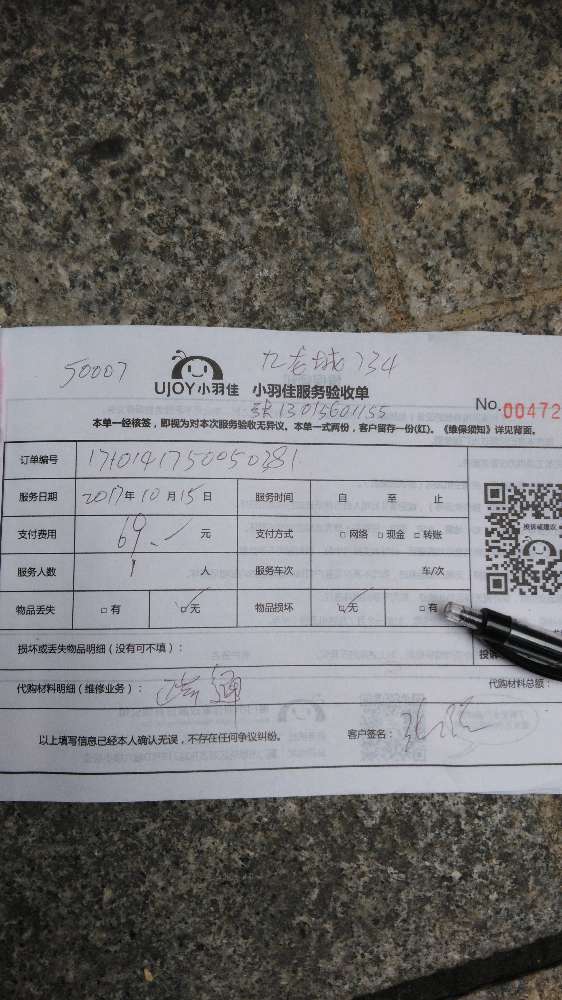 50007 九龙城734
UJOY小羽佳 小羽佳服务验收单
No.00472
张13015601155
本单一经核签，即视为对本次服务验收无异议。本单一式两份，客户留存一份(红)。《维保须知》详见背面。
订单编号 1710141750050381
服务日期 2017年10月15日 服务时间 自 至 止
支付费用 69.- 元 支付方式 □网络 □现金 □转账
服务人数 1 人 服务车次 车/次
投诉或建议
物品丢失 □有 ☑无 物品损坏 ☑无 □有
损坏或丢失物品明细（没有可不填）： 投诉
代购材料明细（维修业务）： 代购材料总额：
以上填写信息已经本人确认无误，不存在任何争议纠纷。 客户签名：